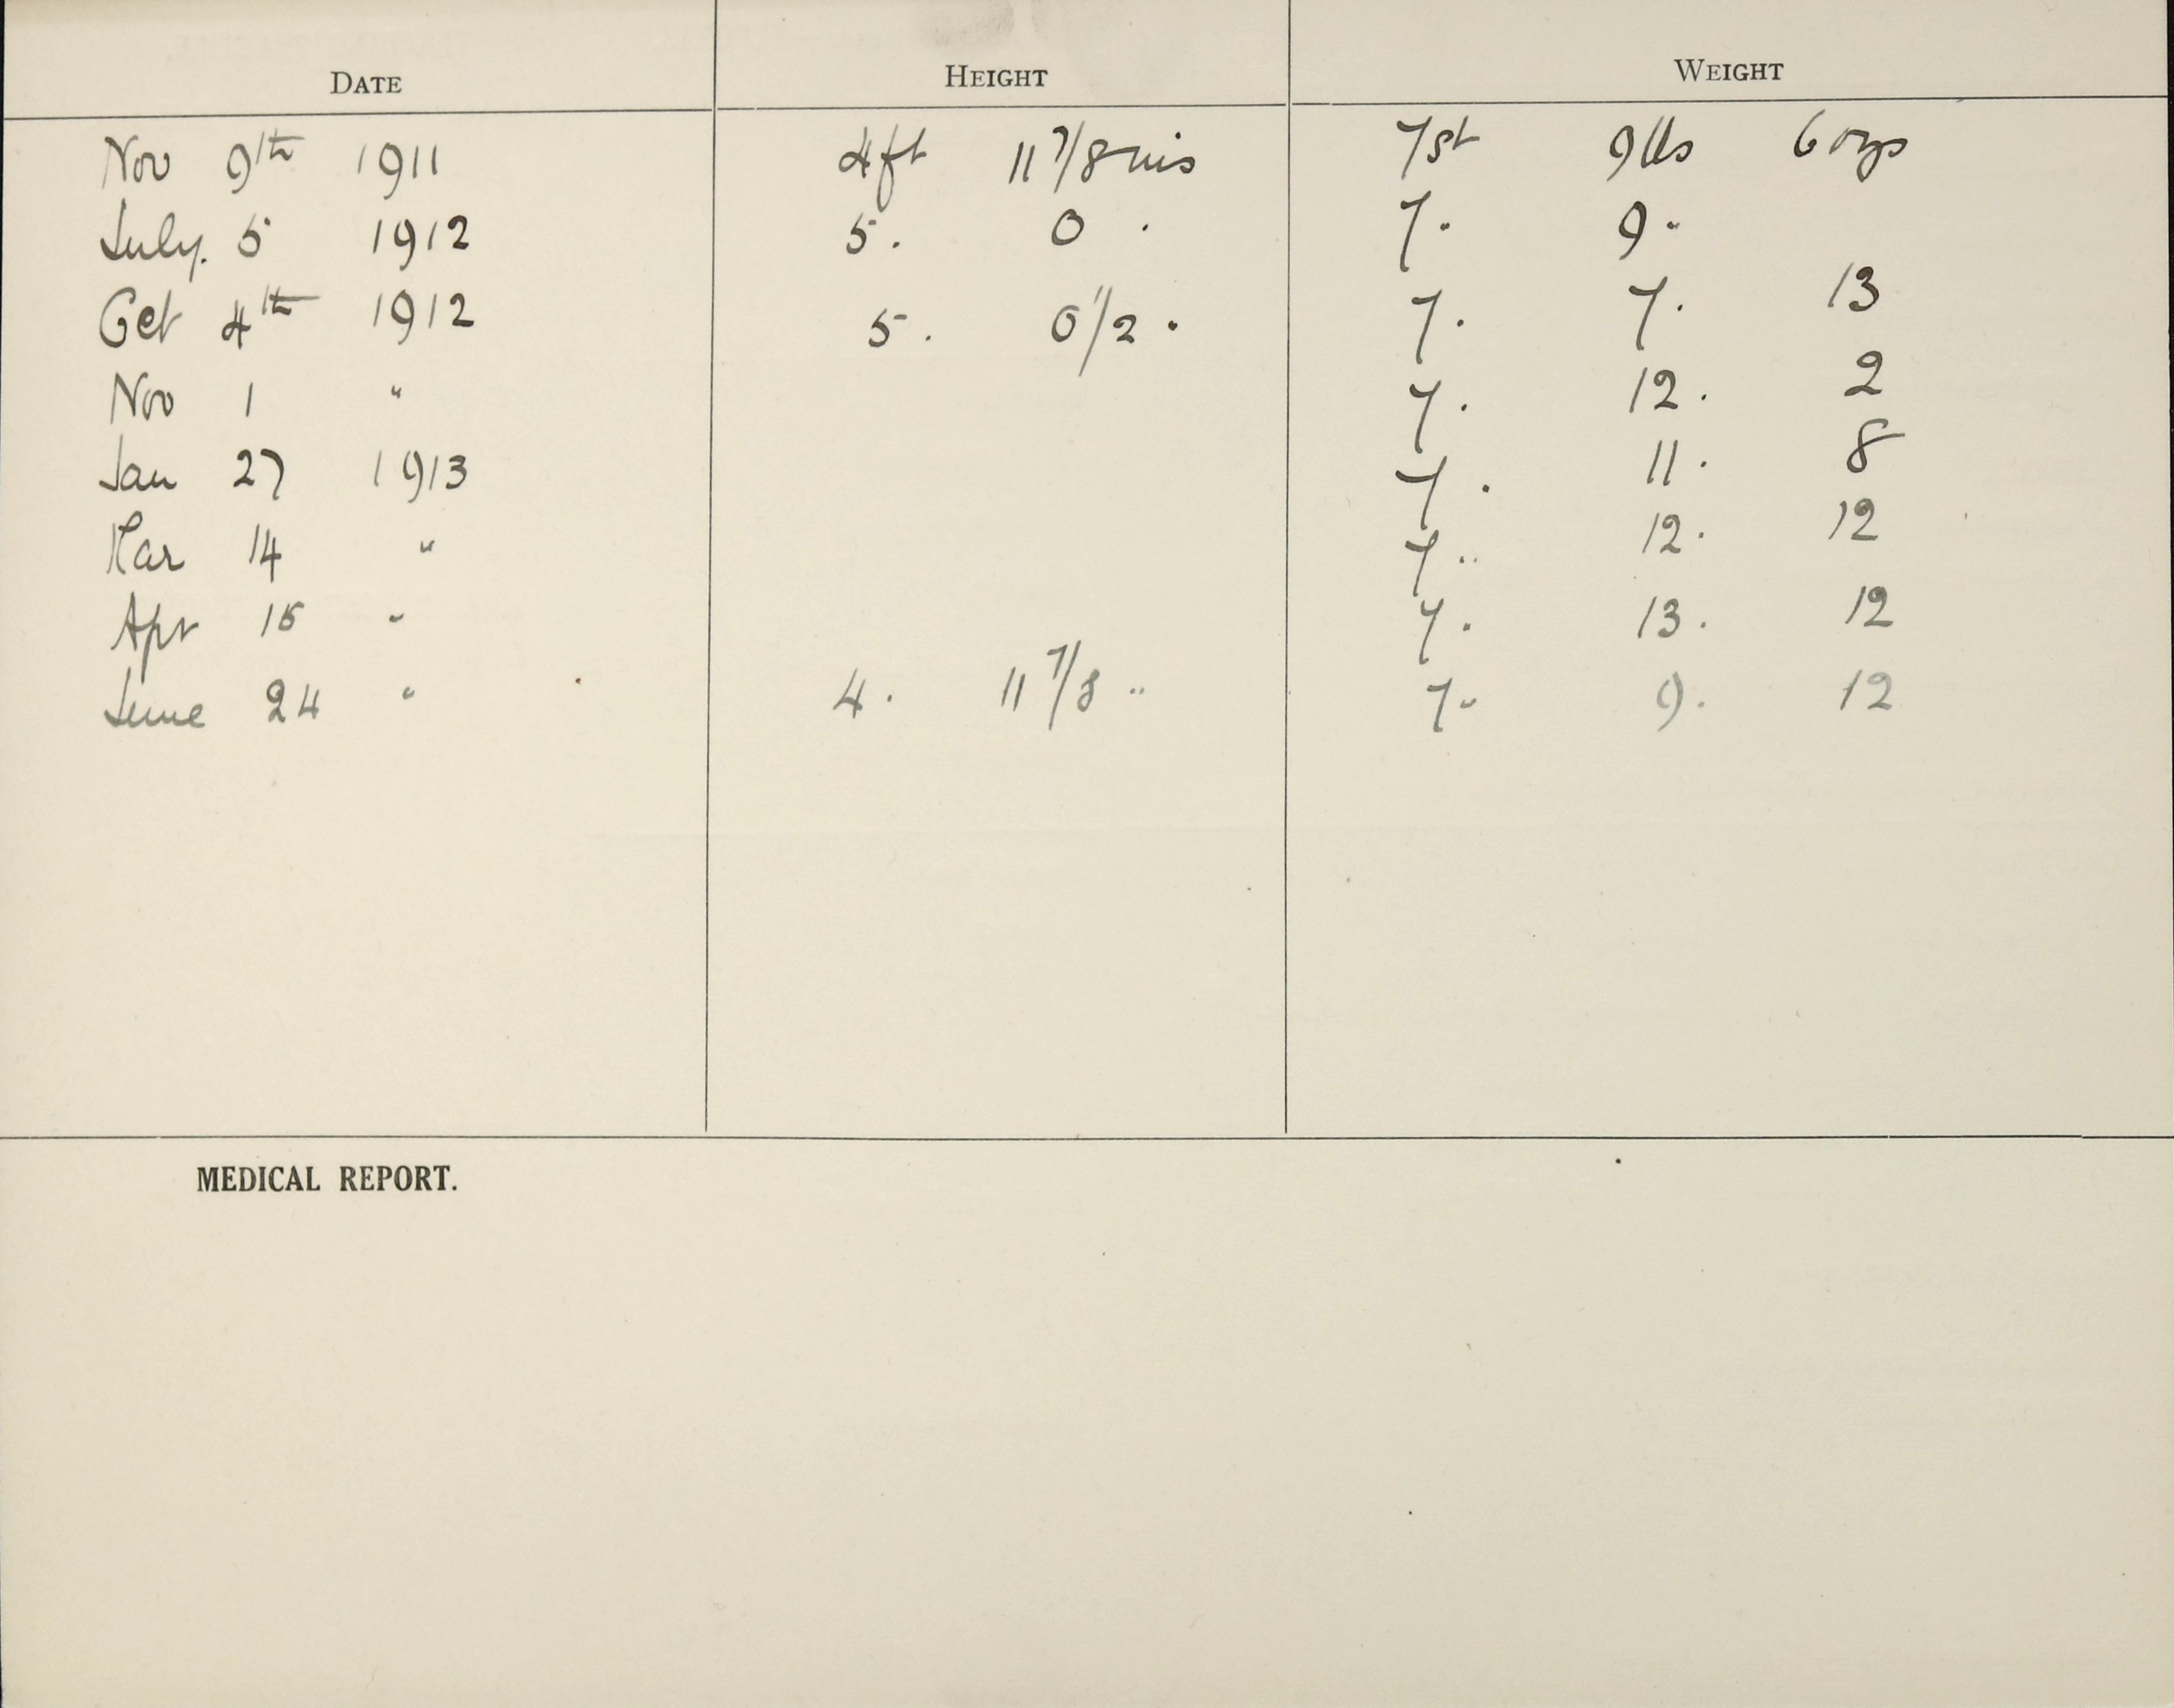 DATE HEIGHT WEIGHT
Nov 9th 1911 4ft 11 7/8 ins 7st 9lbs 6ozs
July. 5 1912 5. 0 . 7. 9.
Oct 4th 1912 5. 0 1/2 . 7. 7. 13
Nov 1 " 7. 12. 2
Jan 27 1913 7. 11. 8
Mar 14 " 7.. 12. 12
Apr 15 " 7. 13. 12
June 24 " 4. 11 7/8 .. 7. 9. 12
MEDICAL REPORT.